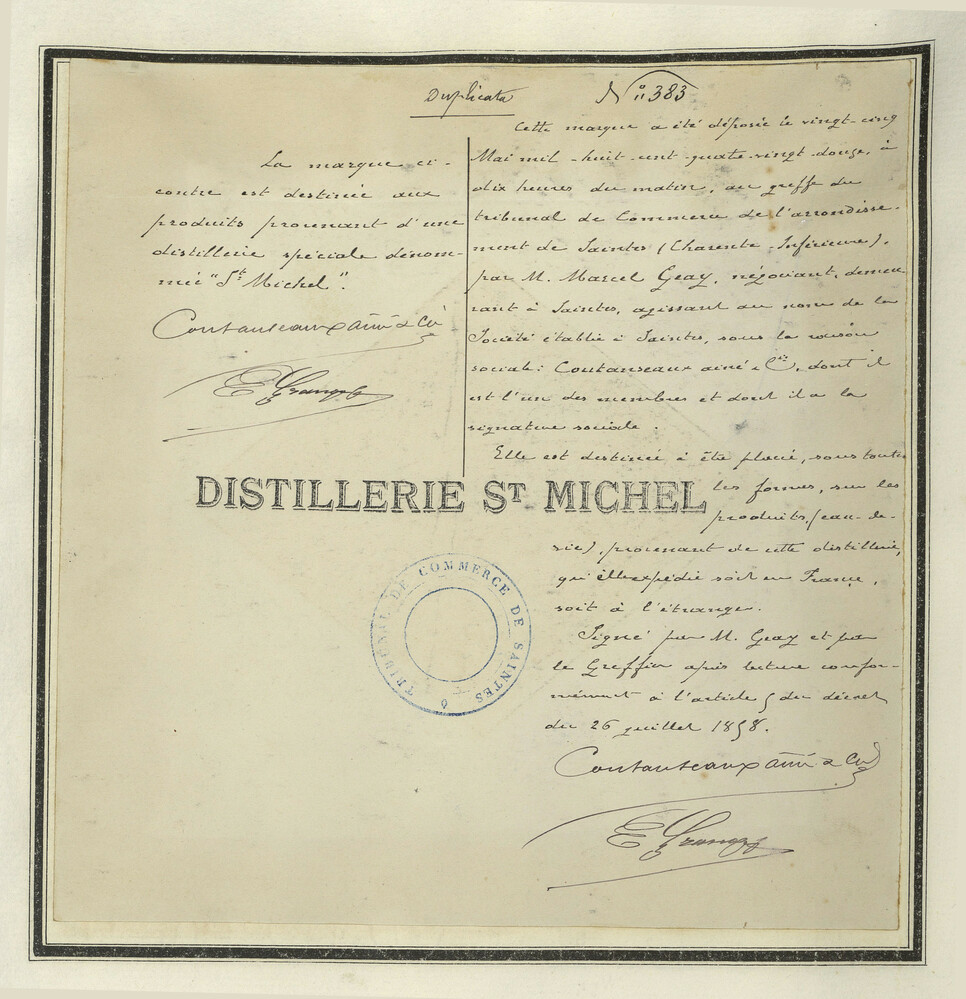 Duplicata
N° 383
La marque ci-
contre est destinée aux
produits provenant d'une
distillerie spéciale dénom-
mée "St Michel".
Coutanseaux ainé & Cie
Cette marque a été déposée le vingt-cinq
Mai mil-huit-cent-quatre-vingt-douze, à
dix heures du matin, au greffe du
tribunal de Commerce de l'arrondisse-
ment de Saintes (Charente-Inférieure),
par M. Marcel Geay, négociant, demeu
rant à Saintes, agissant au nom de la
Société établie à Saintes, sous la raison
sociale: Coutanseaux ainé & Cie, dont il
est l'un des membres et dont il a la
signature sociale.
Elle est destinée à être placée, sous toutes
les formes, sur les
produits, (eau-de-
vie), provenant de cette distillerie,
qu'elle expédie soit en France,
soit à l'étranger.
Signé par M. Geay et par
le Greffier après lecture confor-
mément à l'article 5 du décret
du 26 juillet 1858.
Coutanseaux ainé & Cie
DISTILLERIE ST MICHEL
TRIBUNAL DE COMMERCE DE SAINTES